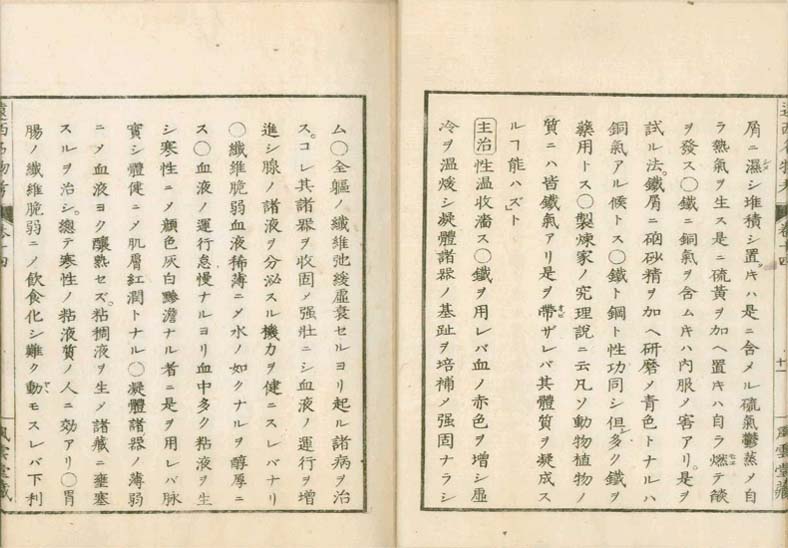 屑ニ濕シ堆積シ置キハ是ニ含メル硫氣鬱蒸メ自
ラ熱氣ヲ生ス是ニ硫黄ヲ加ヘ置キハ自ラ燃テ燄
ヲ發ス〇鐵ニ銅氣ヲ含ムキハ内服ノ害アリ。是ヲ
試ル法。鐵屑ニ硇砂精ヲ加ヘ研磨メ青色トナルハ
銅氣アル候トス〇鐵ト鋼ト性功同シ但多ク鐵ヲ
藥用トス〇製煉家ノ究理説ニ云凡ソ動物植物ノ
質ニハ皆鐵氣アリ是ヲ帶ザレバ其體質ヲ凝成ス
ルヿ能ハズト
主治 性温收濇ス〇鐵ヲ用レバ血ノ赤色ヲ增シ虚
冷ヲ温煖シ凝體諸器ノ基趾ヲ培補メ强固ナラシ
十一
風雲堂藏
ム〇全軀ノ纖維弛緩虚衰セルヨリ起ル諸病ヲ治
ス。コレ其諸器ヲ收固メ强壯ニシ血液ノ運行ヲ增
進シ腺ノ諸液ヲ分泌スル機力ヲ健ニスレバナリ
〇纖維脆弱血液稀薄ニメ水ノ如クナルヲ醇厚ニ
ス〇血液ノ運行怠慢ナルヨリ血中多ク粘液ヲ生
シ寒性ニメ顔色灰白黲澹ナル者ニ是ヲ用レバ脉
實シ體健ニメ肌膚紅潤トナル〇凝體諸器ノ薄弱
ニメ血液ヨク釀熟セズ。粘稠液ヲ生メ諸藏ニ壅塞
スルヲ治シ。總テ寒性ノ粘液質ノ人ニ効アリ〇胃
腸ノ纖維脆弱ニノ飲食化シ難ク動モスレバ下利
遠西名物考
卷十四
風雲堂藏